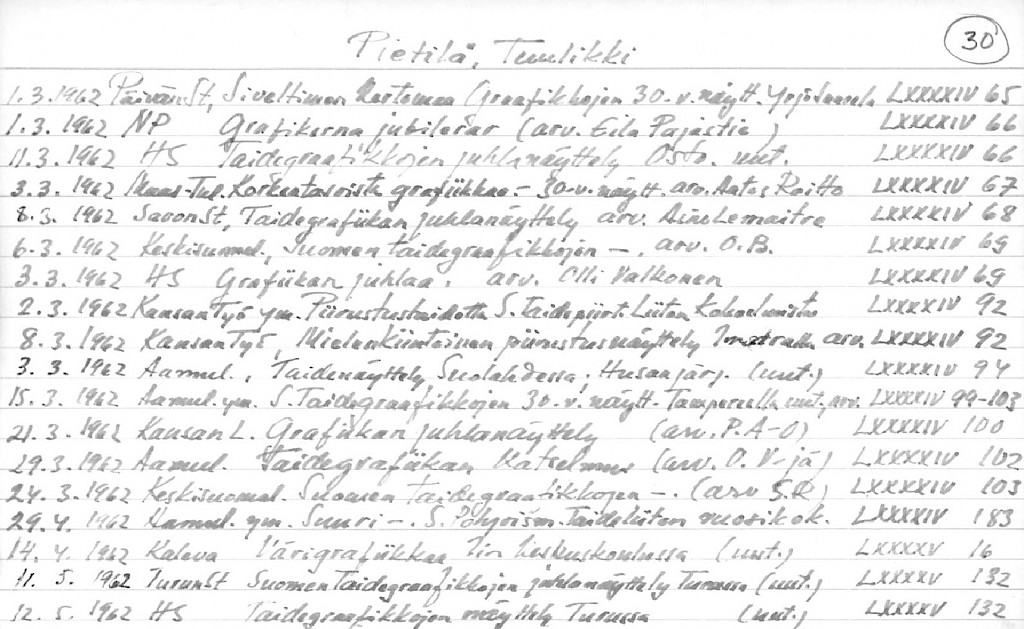 30
Pietilä, Tuulikki
1.3.1962 PäivänSt, Siveltimen kertomaa (Graafikkojen 30.v.näytt. LXXXXIV 65
1.3.1962 NP Grafikerna jubilerar (arv. Eila Pajastie) LXXXXIV 66
11.3.1962 HS Taidegraafikkojen juhlanäyttely Osto. uut. LXXXXIV 66
3.3.1962 Korkeatasoista grafiikkaa - 30-v. näytt. arv. Aatos Raitto LXXXXIV 67
8.3.1962 SavonSt, Taidegrafiikan juhlanäyttely arv. Aune Lemaitre LXXXXIV 68
6.3.1962 Keskisuomal., Suomen taidegraafikkojen -. arv. O.B. LXXXXIV 69
3.3.1962 HS Grafiikan juhlaa. arv. Olli Valkonen LXXXXIV 69
2.3.1962 KansanTyö ym. Piirustustaidetta S.Taidepiirt.Liiton Kokoelmista LXXXXIV 92
8.3.1962 KansanTyö, Mielenkiintoinen piirustusnäyttely Imatralla arv. LXXXXIV 92
3.3.1962 Aamul., Taidenäyttely Suolahdessa, (uut.) LXXXXIV 94
15.3.1962 Aamul.ym. S.Taidegraafikkojen 30.v. näytt. Tampereella uut, arv. LXXXXIV 99-103
21.3.1962 Kansan L. Grafiikan juhlanäyttely (arv. P.A-O) LXXXXIV 100
29.3.1962 Aamul. Taidegrafiikan Katselmus (arv. O.V-jä) LXXXXIV 102
24.3.1962 Keskisuomal. Suomen taidegraafikkojen -. (arv S.R) LXXXXIV 103
29.4.1962 Aamul. ym. Suuri -. S.Pohjoism.Taideliiton vuosikok. LXXXXIV 183
14.4.1962 Kaleva Värigrafiikkaa Iin keskuskoulussa (uut.) LXXXXV 16
11.5.1962 TurunSt Suomen Taidegraafikkojen juhlanäyttely Turussa (uut.) LXXXXV 132
12.5.1962 HS Taidegraafikkojen näyttely Turussa (uut.) LXXXXV 132